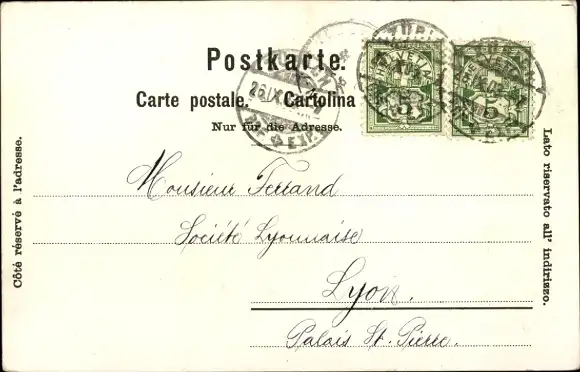 Postkarte.
Carte postale. Cartolina
Nur für die Adresse.
Côté réservé à l'adresse.
Lato riservato all' indirizzo.
HELVETIA
5
5
Monsieur Ferrand
Société Lyonnaise
Lyon.
Palais St. Pierre.